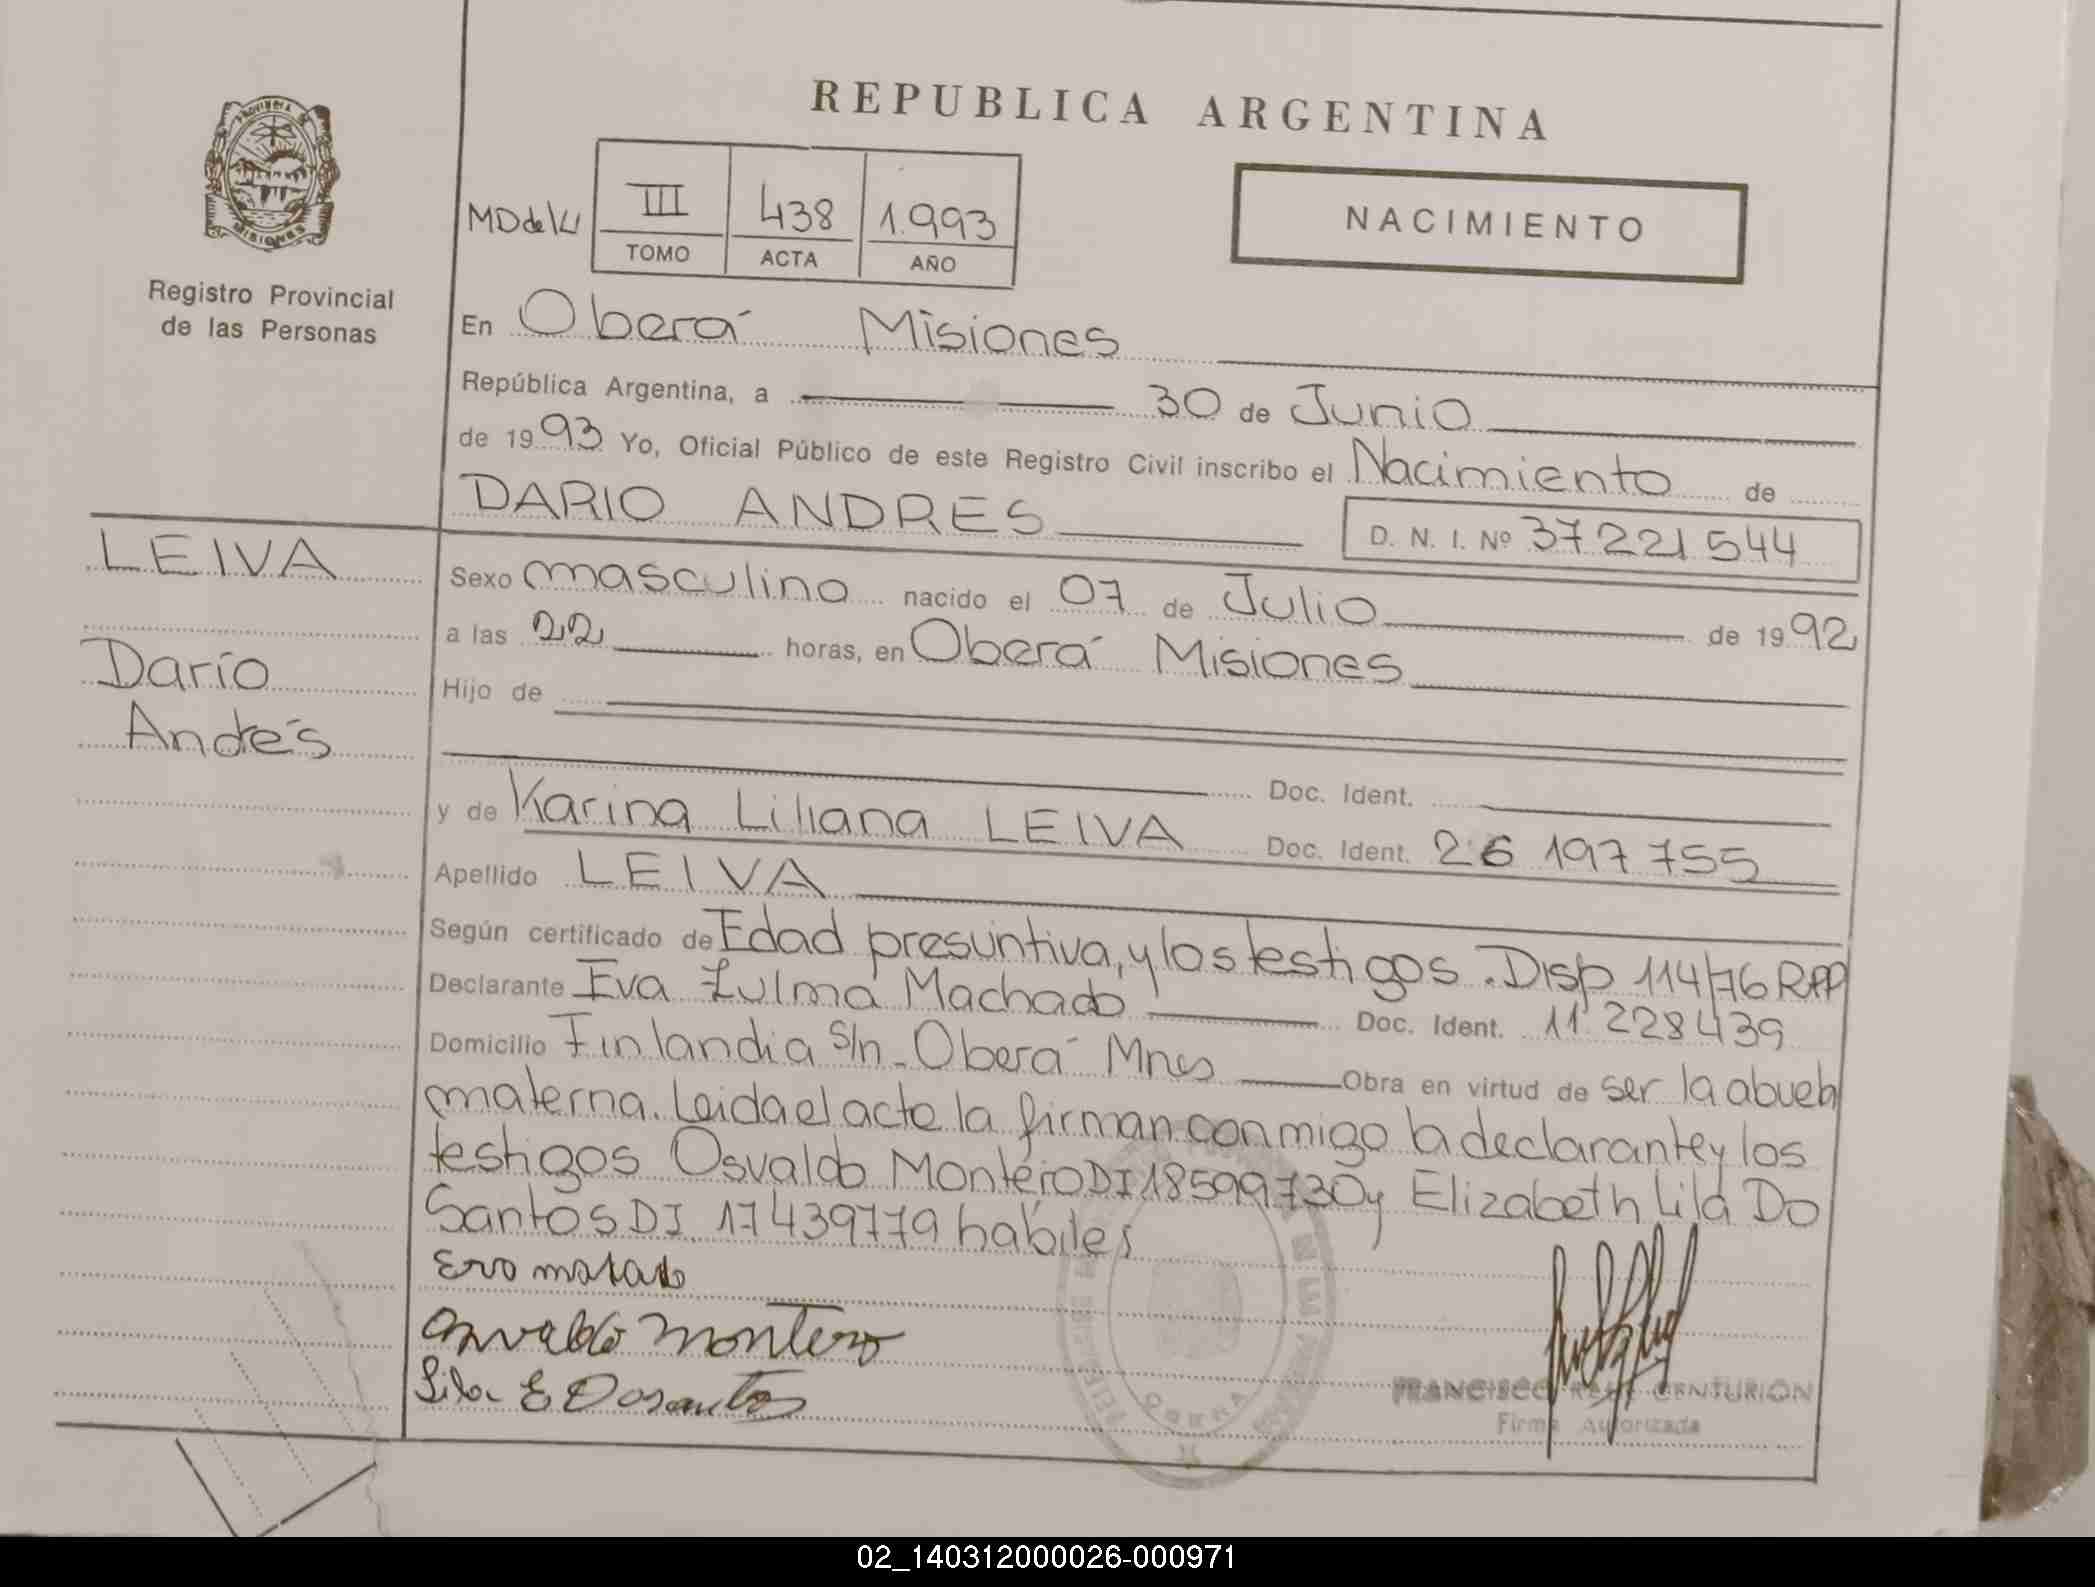 REPUBLICA ARGENTINA
PROVINCIA DE
MISIONES
Registro Provincial
de las Personas
III 438 1.993
TOMO ACTA AÑO
NACIMIENTO
En Oberá Misiones
República Argentina, a 30 de Junio
de 1993 Yo, Oficial Público de este Registro Civil inscribo el Nacimiento de
DARIO ANDRES
D. N. I. Nº 37221544
LEIVA
Darío
Andrés
Sexo masculino nacido el 07 de Julio de 1992
a las 22 horas, en Oberá Misiones
Hijo de
Doc. Ident.
y de Karina Liliana LEIVA Doc. Ident. 26 197 755
Apellido LEIVA
Según certificado de Edad presuntiva, y los testigos. Disp 114/76 RPP
Declarante Eva Zulma Machado Doc. Ident. 11.228439
Domicilio Finlandia s/n - Oberá Mnes Obra en virtud de ser la abuela
materna. Leida el acto la firman conmigo la declarante y los
testigos Osvaldo Montero DI 18599730 y Elizabeth Lila Do
Santos DI. 17439779 habiles
Osvaldo Montero
Lila E Dosantos
OBERA
FRANCISCO RENE CENTURION
Firma Autorizada
02_140312000026-000971